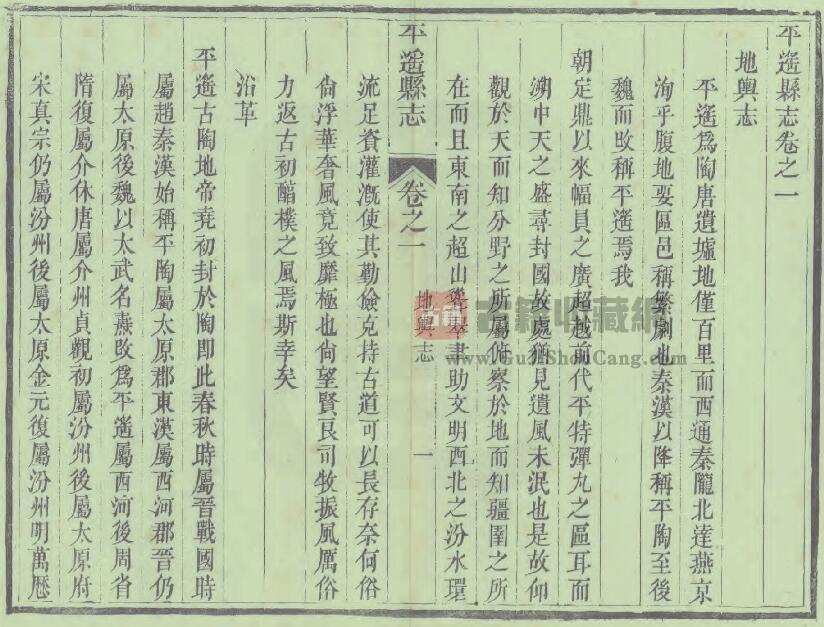 平遙縣志卷之一
地輿志
平遙爲陶唐遺墟地僅百里而西通秦隴北達燕京
洵乎腹地要區邑稱繁劇也秦漢以降稱平陶至後
魏而改稱平遙焉我
朝定鼎以來幅員之廣超越前代平特彈丸之區耳而
溯中天之盛尋封國故處猶見遺風未泯也是故仰
觀於天而知分野之所屬俯察於地而知疆圉之所
在而且東南之超山聳翠晝助文明西北之汾水環
平遙縣志
卷之一
地輿志
一
流足資灌漑使其勤儉克持古道可以長存奈何俗
尙浮華奢風竟致靡極也尙望賢良司牧振風厲俗
力返古初醕樸之風焉斯幸矣
沿革
平遙古陶地帝堯初封於陶卽此春秋時屬晉戰國時
屬趙秦漢始稱平陶屬太原郡東漢屬西河郡晉仍
屬太原後魏以太武名燾改爲平遙屬西河後周省
隋復屬介休唐屬介州貞觀初屬汾州後屬太原府
宋真宗仍屬汾州後屬太原金元復屬汾州明萬歷
古籍收藏網
www.GuJiShouCang.com